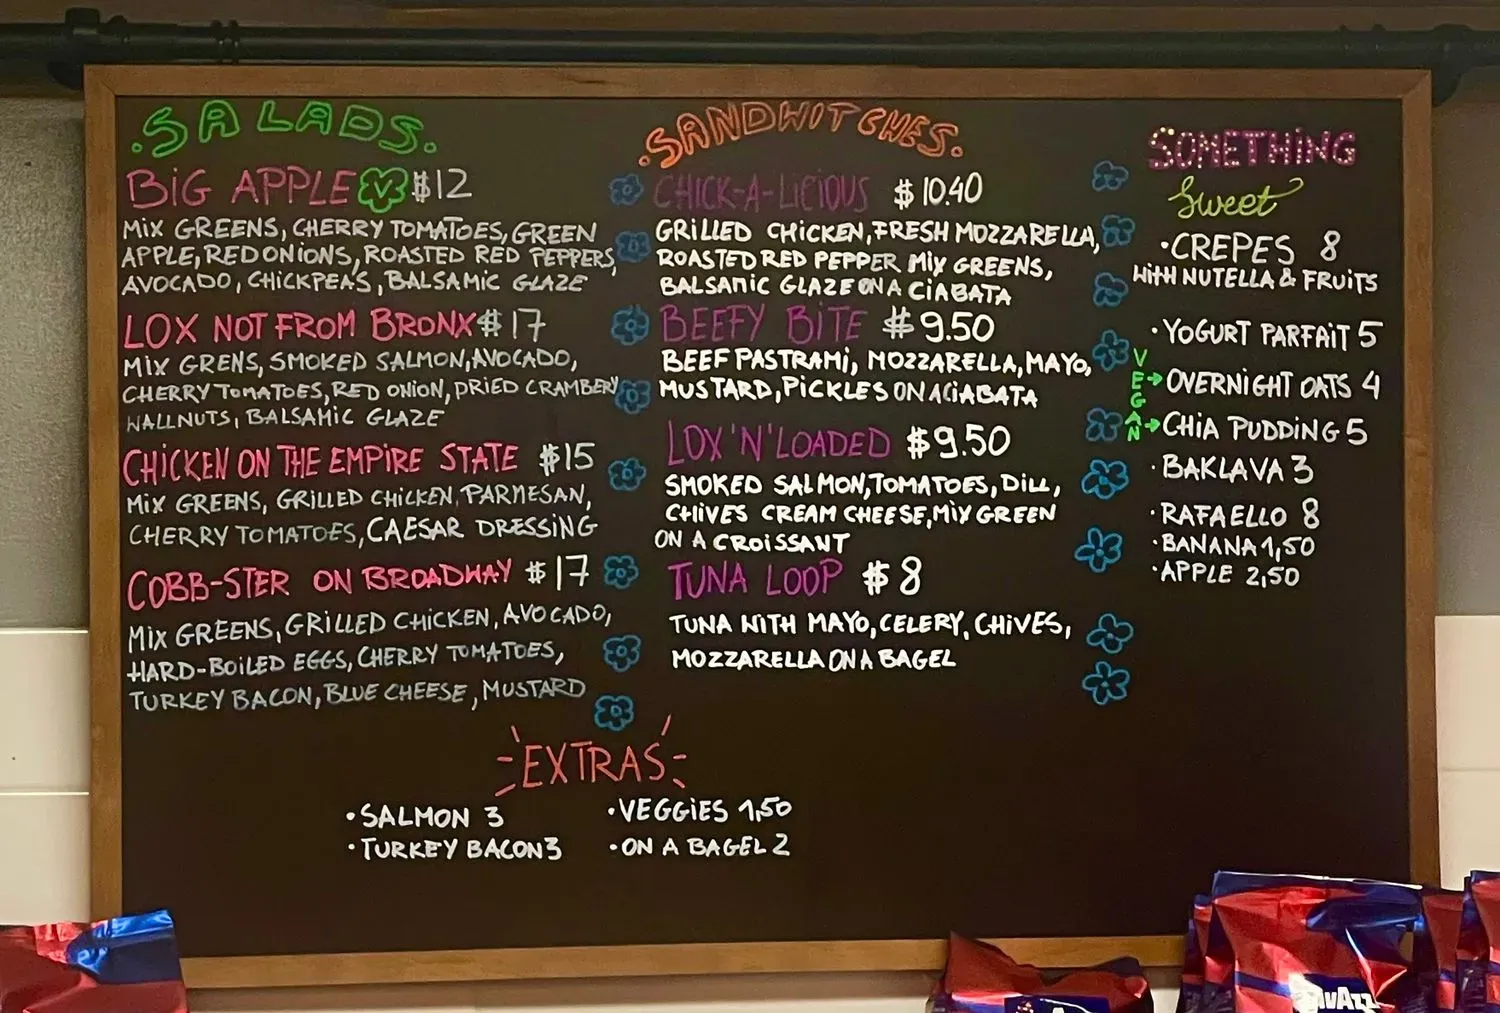 SALADS.
BIG APPLE V $12
MIX GREENS, CHERRY TOMATOES, GREEN
APPLE, RED ONIONS, ROASTED RED PEPPERS,
AVOCADO, CHICKPEAS, BALSAMIC GLAZE
LOX NOT FROM BRONX $17
MIX GRENS, SMOKED SALMON, AVOCADO,
CHERRY TOMATOES, RED ONION, DRIED CRAMBERY
WALLNUTS, BALSAMIC GLAZE
CHICKEN ON THE EMPIRE STATE $15
MIX GREENS, GRILLED CHICKEN, PARMESAN,
CHERRY TOMATOES, CAESAR DRESSING
COBB-STER ON BROADWAY $17
MIX GREENS, GRILLED CHICKEN, AVOCADO,
HARD-BOILED EGGS, CHERRY TOMATOES,
TURKEY BACON, BLUE CHEESE, MUSTARD
SANDWITCHES.
CHICK-A-LICIOUS $10.40
GRILLED CHICKEN, FRESH MOZZARELLA,
ROASTED RED PEPPER MIX GREENS,
BALSAMIC GLAZE ON A CIABATA
BEEFY BITE $9.50
BEEF PASTRAMI, MOZZARELLA, MAYO,
MUSTARD, PICKLES ON A CIABATA
LOX 'N' LOADED $9.50
SMOKED SALMON, TOMATOES, DILL,
CHIVES CREAM CHEESE, MIX GREEN
ON A CROISSANT
TUNA LOOP $8
TUNA WITH MAYO, CELERY, CHIVES,
MOZZARELLA ON A BAGEL
SOMETHING
Sweet
·CREPES 8
WITH NUTELLA & FRUITS
·YOGURT PARFAIT 5
VEGAN
→OVERNIGHT OATS 4
→CHIA PUDDING 5
·BAKLAVA 3
·RAFAELLO 8
·BANANA 1,50
·APPLE 2,50
EXTRAS
·SALMON 3
·TURKEY BACON 3
·VEGGIES 1,50
·ON A BAGEL 2
LAVAZZ